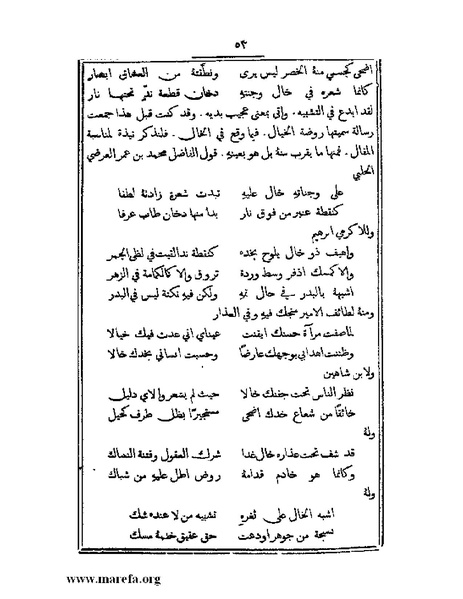 ٥٣
اضحى كجسمي منهُ الخصر ليس يرى ونطّقتهُ من العشاق ابصار
كأنما شعره في خال وجنتهِ دخان قطعة ندّ تحتها نار
لقد ابدع في التشبيه . واتى بمعنى عجيب بديه . وقد كنت قبل هذا جمعت
رسالة سميتها روضة الخيال . فيما وقع في الخال . فلنذكر نبذة لمناسبة
المقال . فمنها ما يقرب منهُ بل هو بعينهِ . قول الفاضل محمد بن عمر العرضي
الحلبي
على وجناتهِ خال عليهِ تبدت شعرة زادتهُ لطفا
كنقطة عنبر من فوق نار بدا منها دخان طاب عرفا
وللاكرمي ابرهيم
واهيف ذو خال يلوح بخده كنقطة ند القيت في لظى الجمر
والا كمسك اذفر وسط وردة تروق والا كالكمامة في الزهر
اشبههُ بالبدر في حال تمهِ ولكن فيهِ نكتة ليس في البدر
ومنهُ لطائف الامير منجك فيهِ وفي العذار
لما صفت مرآة حسنك ايقنت عيناي اني عدت فيك خيالا
وظننت اهدابي بوجهك عارضًا وحسبت انساني بخدك خالا
ولابن شاهين
نظر الناس تحت جفنك خالا حيث لم يشعروا لاي دليل
خائفًا من شعاع خدك اضحى مستجيرًا بظل طرف كحيل
ولهُ
قد شف تحت عذاره خال غدا شرك العقول وفتنة النساك
وكأنما هو خادم قدامهُ روض اطل عليهِ من شباك
ولهُ
اشبه الخال على ثغرهِ تشبيه من لا عنده شك
بسبحة من جوهر اودعت حق عقيق ختمهُ مسك
www.marefa.org